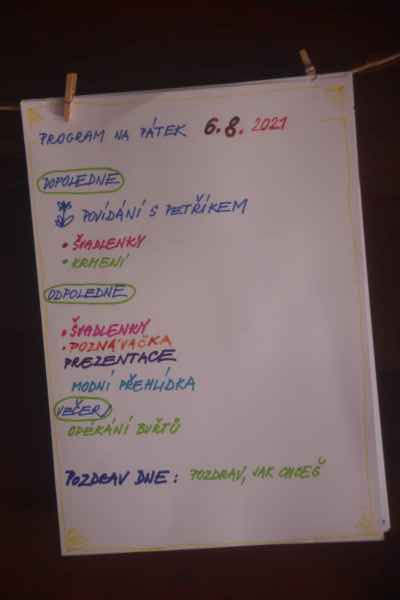 PROGRAM NA PÁTEK 6.8. 2021
DOPOLEDNE
POVÍDÁNÍ S PETŘÍKEM
• ŠVADLENKY
• KRMENÍ
ODPOLEDNE
• ŠVADLENKY
• POZNÁVAČKA
PREZENTACE
MODNÍ PŘEHLÍDKA
VEČER
OPÉKÁNÍ BUŘTŮ
POZDRAV DNE: POZDRAV, JAK CHCEŠ